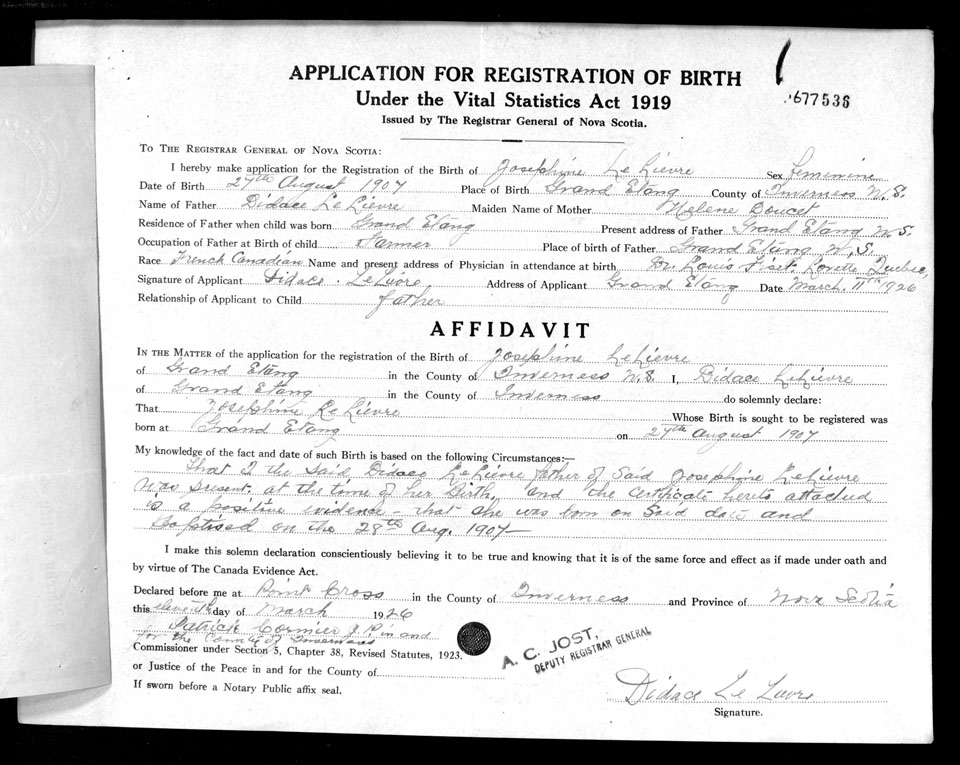 APPLICATION FOR REGISTRATION OF BIRTH
677536
Under the Vital Statistics Act 1919
Issued by The Registrar General of Nova Scotia.
TO THE REGISTRAR GENERAL OF NOVA SCOTIA:
I hereby make application for the Registration of the Birth of Josephine Le Lievre Sex Feminine
Date of Birth 27th August 1907 Place of Birth Grand Etang County of Inverness N.S.
Name of Father Didace Le Lievre Maiden Name of Mother Helene Doucet
Residence of Father when child was born Grand Etang Present address of Father Grand Etang N.S.
Occupation of Father at Birth of child Farmer Place of birth of Father Grand Etang N.S.
Race French Canadian Name and present address of Physician in attendance at birth Dr. Louis Fiset. Lorette Quebec,
Signature of Applicant Didace Le Lievre Address of Applicant Grand Etang Date March. 11th 1926
Relationship of Applicant to Child father
AFFIDAVIT
IN THE MATTER of the application for the registration of the Birth of Josephine LeLievre
of Grand Etang in the County of Inverness N.S. I, Didace LeLievre
of Grand Etang in the County of Inverness do solemnly declare:
That Josephine LeLievre Whose Birth is sought to be registered was
born at Grand Etang on 27th August 1907
My knowledge of the fact and date of such Birth is based on the following Circumstances:—
That I the said Didace LeLievre father of Said Josephine LeLievre
was present, at the time of her birth, and the Certificate hereto attached
is a positive evidence - that she was born on Said date and
baptised on the 28th Aug. 1907—
I make this solemn declaration conscientiously believing it to be true and knowing that it is of the same force and effect as if made under oath and
by virtue of The Canada Evidence Act.
Declared before me at Point Cross in the County of Inverness and Province of Nova Scotia
this eleventh day of March 1926
Patrick Cormier J.P. in and
for the County of Inverness
Commissioner under Section 5, Chapter 38, Revised Statutes, 1923.
A. C. JOST,
DEPUTY REGISTRAR GENERAL
or Justice of the Peace in and for the County of
If sworn before a Notary Public affix seal.
Didace Le Livre
Signature.